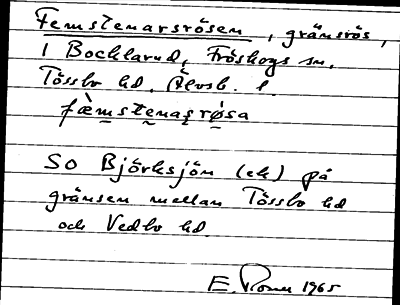 Femstenarsrösen, gränsrös,
i Bocklarud, Fröskogs sn,
Tössbo hd, Älvsb. l.
fæ̀mstenaṣrøsa
SO Björksjön (ek) på
gränsen mellan Tössbo hd
och Vedbo hd.
E. 1965